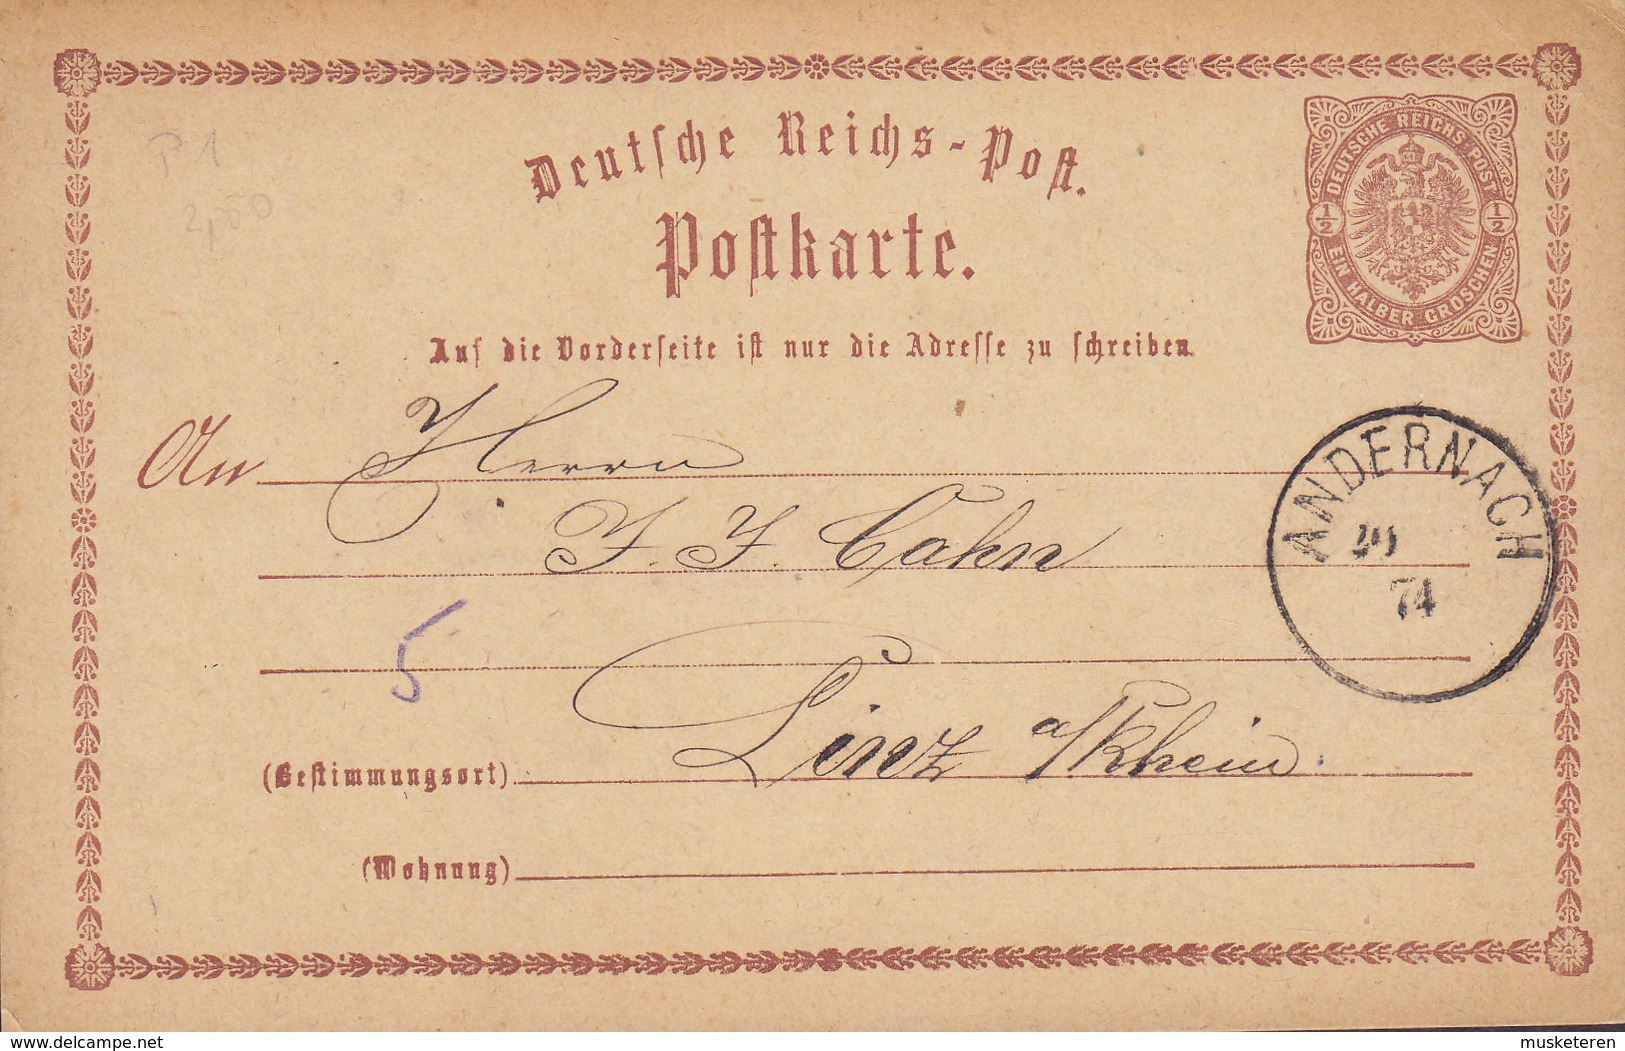 Deutsche Reichs-Post.
Postkarte.
DEUTSCHE REICHS POST
1/2 1/2
EIN HALBER GROSCHEN
P 1
Auf die Vorderseite ist nur die Adresse zu schreiben
An Herrn
J. J. Cahn
5
Linz a/Rhein.
(Bestimmungsort)
(Wohnung)
ANDERNACH
74
delcampe.net
musketeren